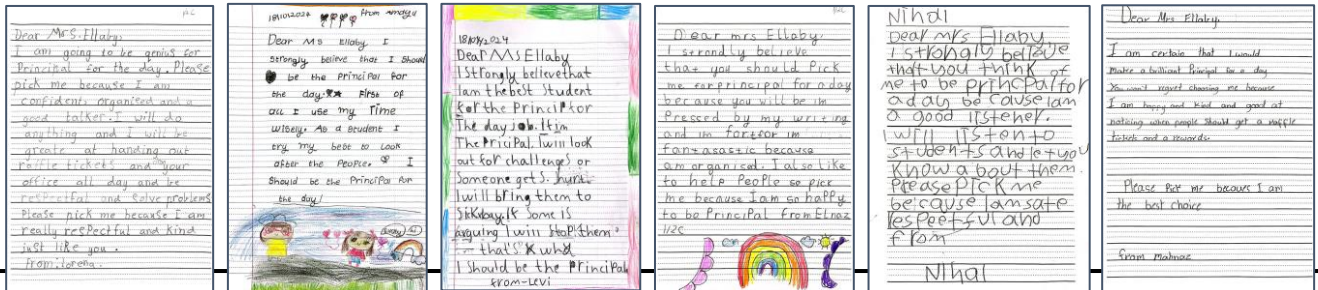 Dear Mrs. Ellaby,
I am going to be genius for
Principal for the day. Please
pick me because I am
confident, organised and a
good talker. I will do
anything and I will be
greate at handing out
raffle tickets and your
office all day and be
respectful and solve problems
Please pick me because I am
really respectful and kind
just like you.
From: lorena.
18/10/2024 from
Dear Ms Ellaby I
strongly believe that I should
be the Principal for
the day. First of
all I use my Time
wisely. As a student I
try my best to Look
after the People. I
should be the Principal for
the day!
Dear Ms Ellaby
I Strongly believe that
I am the best Student
for the Principl for
The day job. If im
The Pricipal. I will look
out for challenges or
Someone gets hurt.
I will bring them to
Sickbay. If Some is
arguing I will Stop them.
that's
I Should be the Principal
from-Levi
Dear mrs Ellaby.
I strondly believe
that you should Pick
me for principal for a day
because you will be im
pressed by my writing
and im
fantasastic because
am organised. I also like
to help People so pick
me because I am so happy
to be Principal from Elnaz
1/2C
Nihal
Dear mrs Ellaby
I strongly believe
that you think of
me to be princpal for
a day because I am
a good listener.
I will listen to
students and let you
know about them.
Please pick me
because I am safe
respectful and
from
Nihal
Dear Mrs Ellaby,
I am certain that I would
Make a brilliant Principal for a day
You won't regret choosing me because
I am happy and kind and good at
noticing when people should get a raffle
tickets and a rewards.
Please Pick me becaues I am
the best choice
from Mahnaz